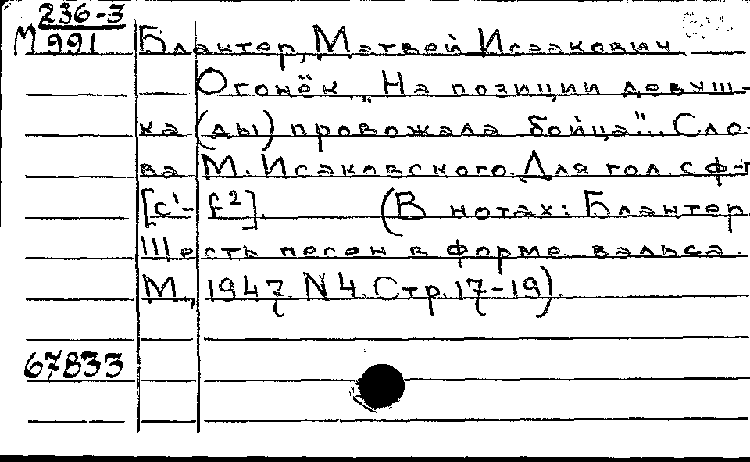 236-3
М 991 Блантер, Матвей Исаакович
Огонёк „На позиции девуш-
ка (ды) провожала бойца". Сло-
ва М. Исаковского. Для гол. с ф-п
[c¹- f²]. (В нотах: Блантер
Шесть песен в форме вальса.
М., 1947 N 4. Стр. 17-19).
67833